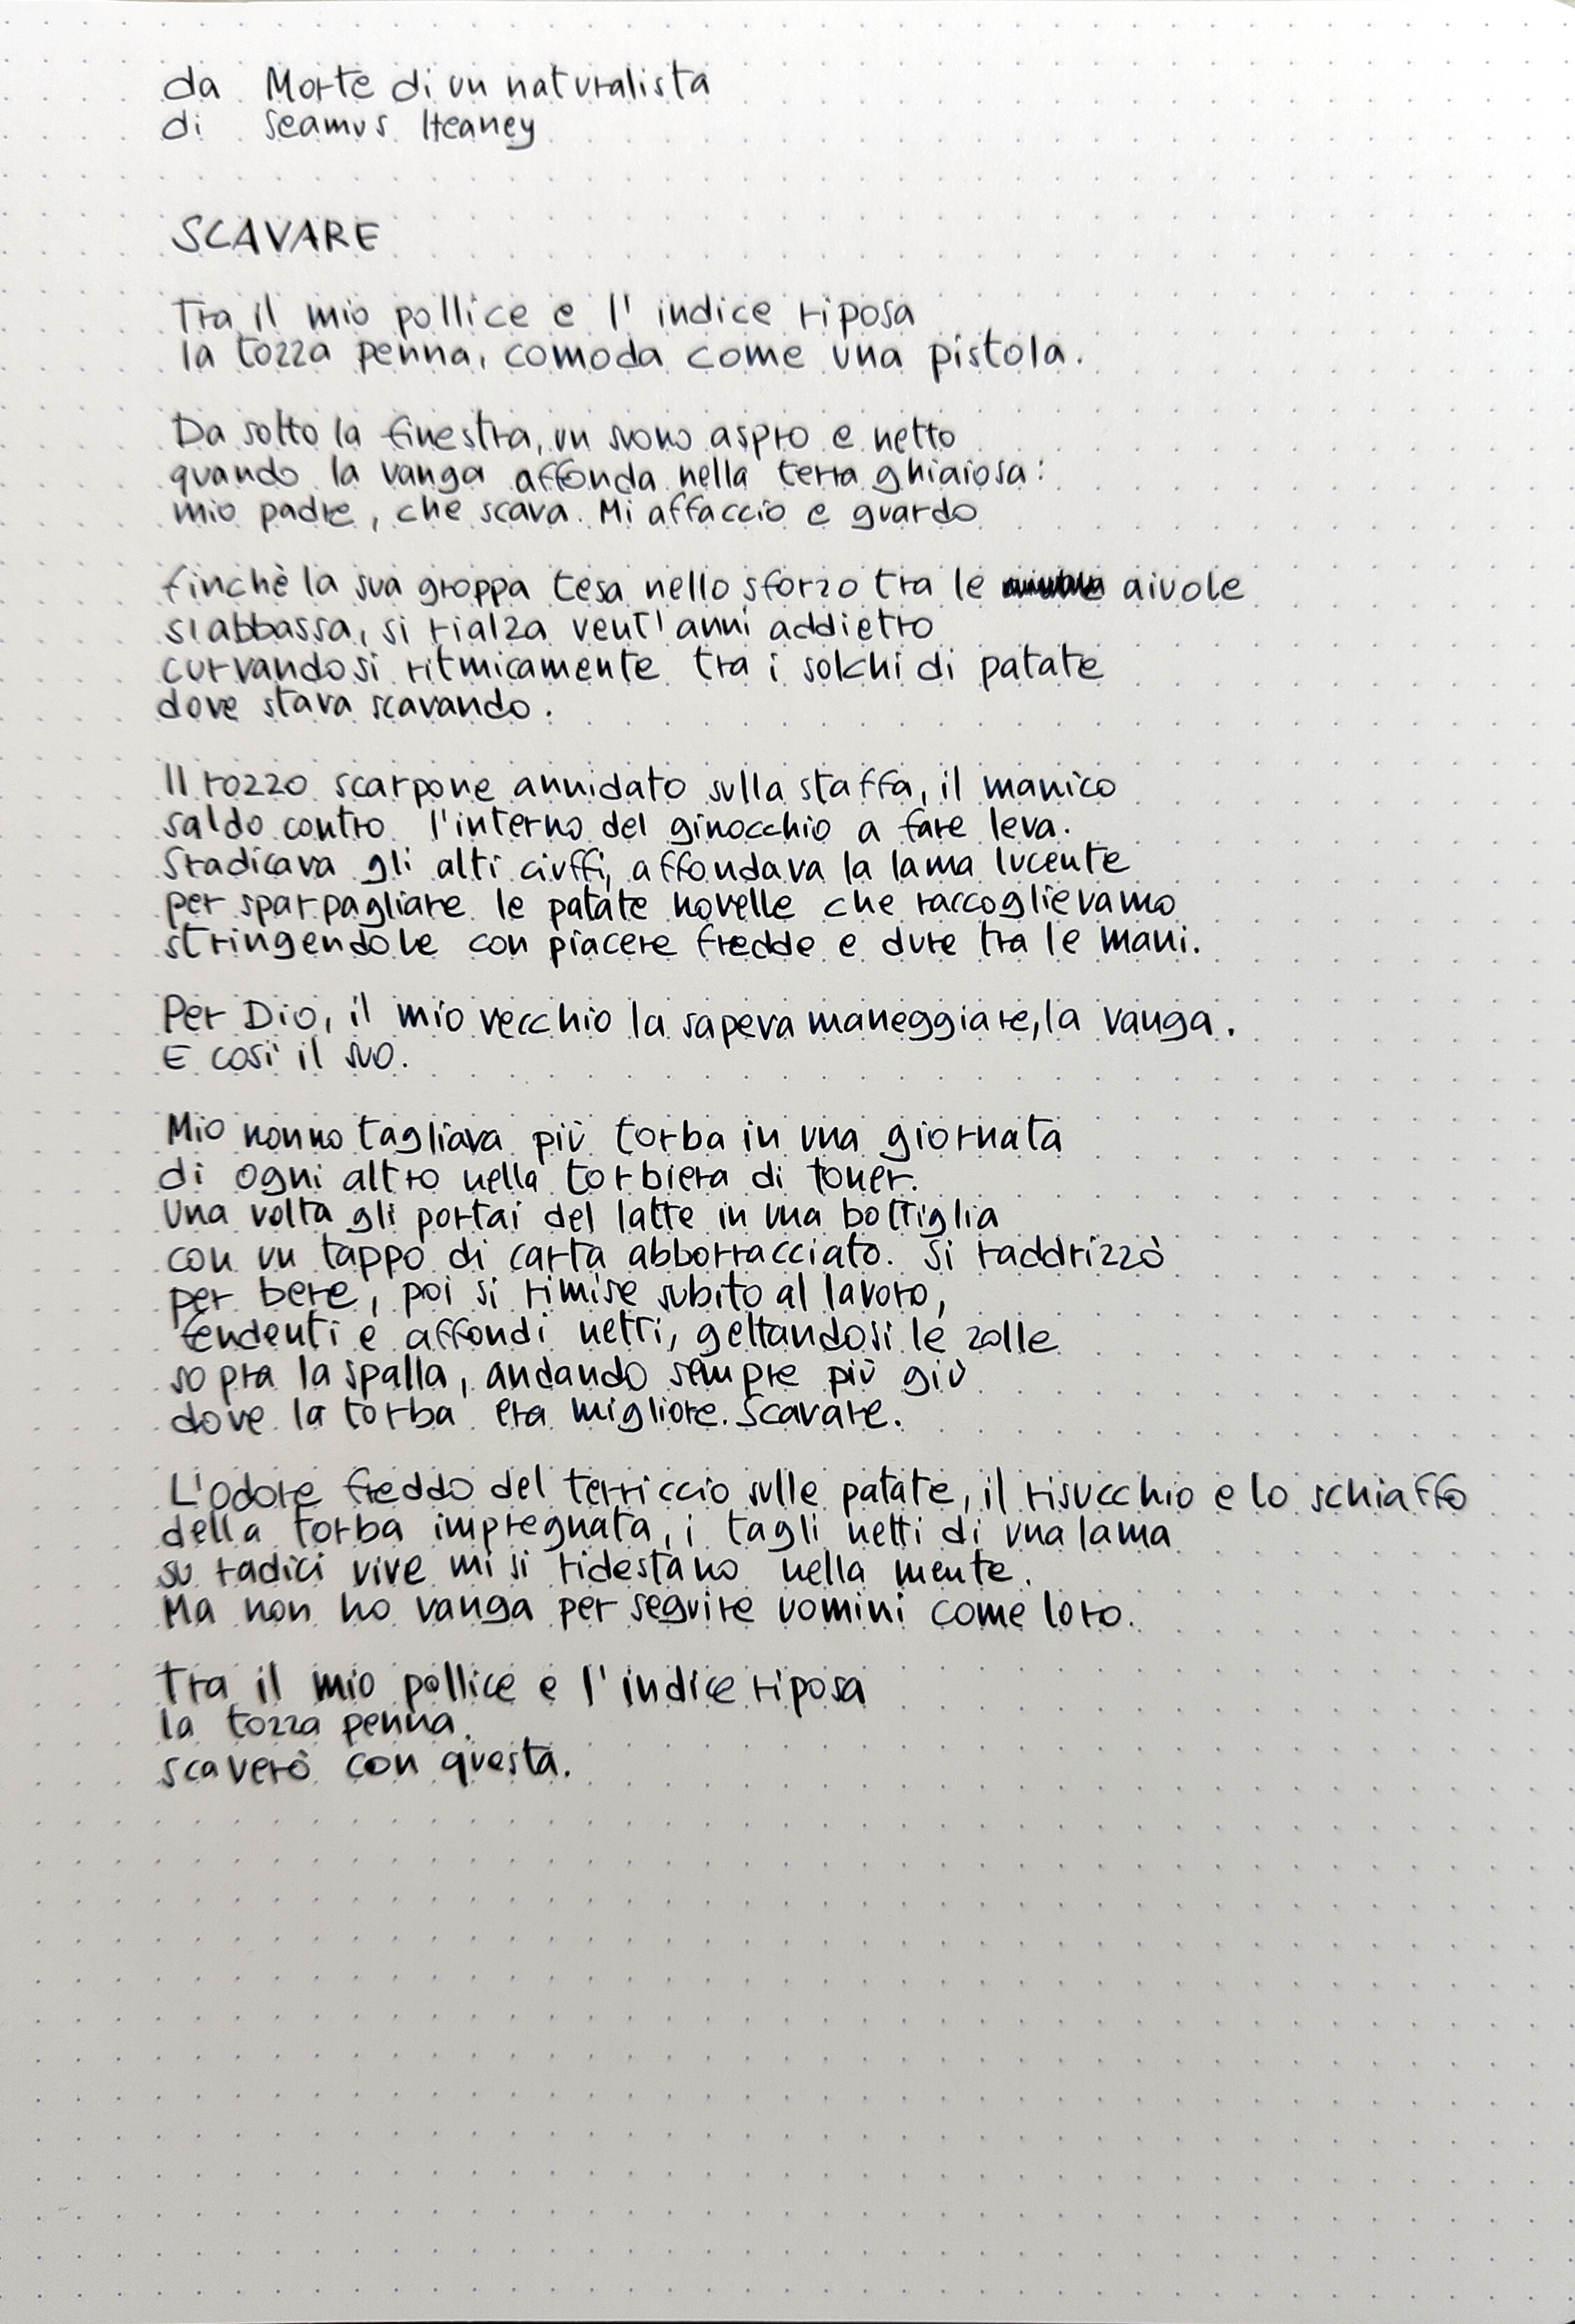 da Morte di un naturalista
di Seamus Heaney
SCAVARE
Tra il mio pollice e l'indice riposa
la tozza penna, comoda come una pistola.
Da sotto la finestra, un suono aspro e netto
quando la vanga affonda nella terra ghiaiosa:
mio padre, che scava. Mi affaccio e guardo
finchè la sua groppa tesa nello sforzo tra le aiuole
si abbassa, si rialza vent'anni addietro
curvandosi ritmicamente tra i solchi di patate
dove stava scavando.
Il rozzo scarpone annidato sulla staffa, il manico
saldo contro l'interno del ginocchio a fare leva.
Sradicava gli alti ciuffi, affondava la lama lucente
per sparpagliare le patate novelle che raccoglievamo
stringendole con piacere fredde e dure tra le mani.
Per Dio, il mio vecchio la sapeva maneggiare, la vanga.
E così il suo.
Mio nonno tagliava più torba in una giornata
di ogni altro nella torbiera di Toner.
Una volta gli portai del latte in una bottiglia
con un tappo di carta abborracciato. Si raddrizzò
per bere, poi si rimise subito al lavoro,
fendenti e affondi netti, gettandosi le zolle
sopra la spalla, andando sempre più giù
dove la torba era migliore. Scavare.
L'odore freddo del terriccio sulle patate, il risucchio e lo schiaffo
della torba impregnata, i tagli netti di una lama
su radici vive mi si ridestano nella mente.
Ma non ho vanga per seguire uomini come loro.
Tra il mio pollice e l'indice riposa
la tozza penna.
scaverò con questa.